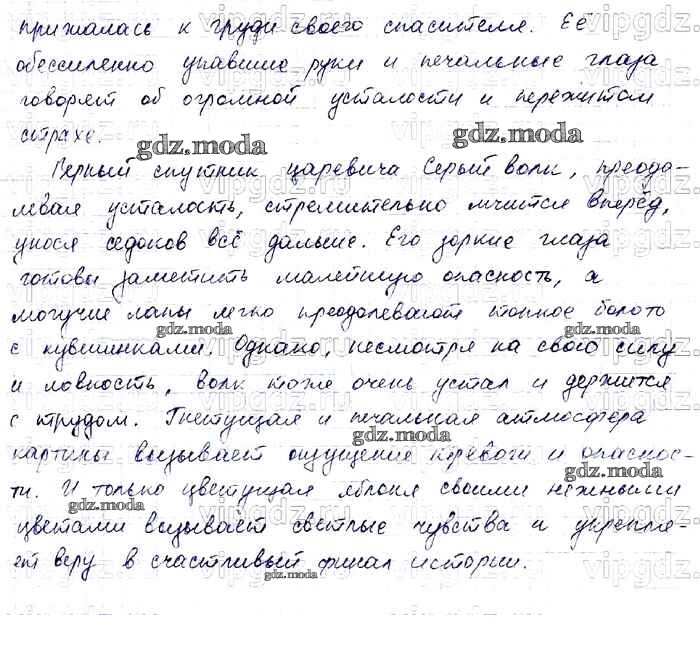 прижалась к груди своего спасителя. Её
обессиленно упавшие руки и печальные глаза
говорят об огромной усталости и пережитом
страхе.
gdz.moda
gdz.moda
Верный спутник царевича Серый волк, преодо-
левая усталость, стремительно мчится вперёд,
унося седоков всё дальше. Его зоркие глаза
готовы заметить малейшую опасность, а
могучие лапы легко преодолевают топкое болото
gdz.moda
gdz.moda
с кувшинками. Однако, несмотря на свою силу
и ловкость, волк тоже очень устал и держится
с трудом. Гнетущая и печальная атмосфера
gdz.moda
картины вызывает ощущение тревоги и опаснос-
gdz.moda
ти. И только цветущая яблоня своими нежными
gdz.moda
цветами вызывает светлые чувства и укрепля-
ет веру в счастливый финал истории.
gdz.moda